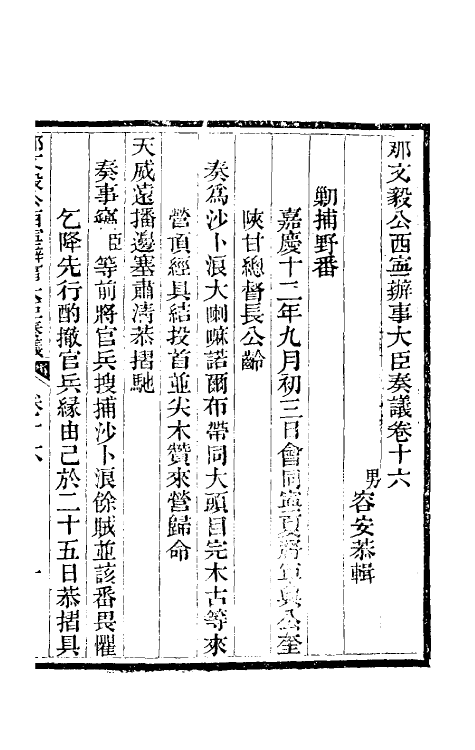 那文毅公西寧辦事大臣奏議卷十六
男
容安恭輯
剿捕野番
嘉慶十二年九月初三日會同寧夏將軍興公奎
陝甘總督長公齡
奏為沙卜浪大喇嘛諾爾布帶同大頭目完木古等來
營頂經具結投首並尖木贊來營歸命
天威遠播邊塞肅清恭摺馳
奏事竊臣等前將官兵搜捕沙卜浪餘賊並該番畏懼
乞降先行酌撤官兵緣由已於二十五日恭摺具
卷十六
一